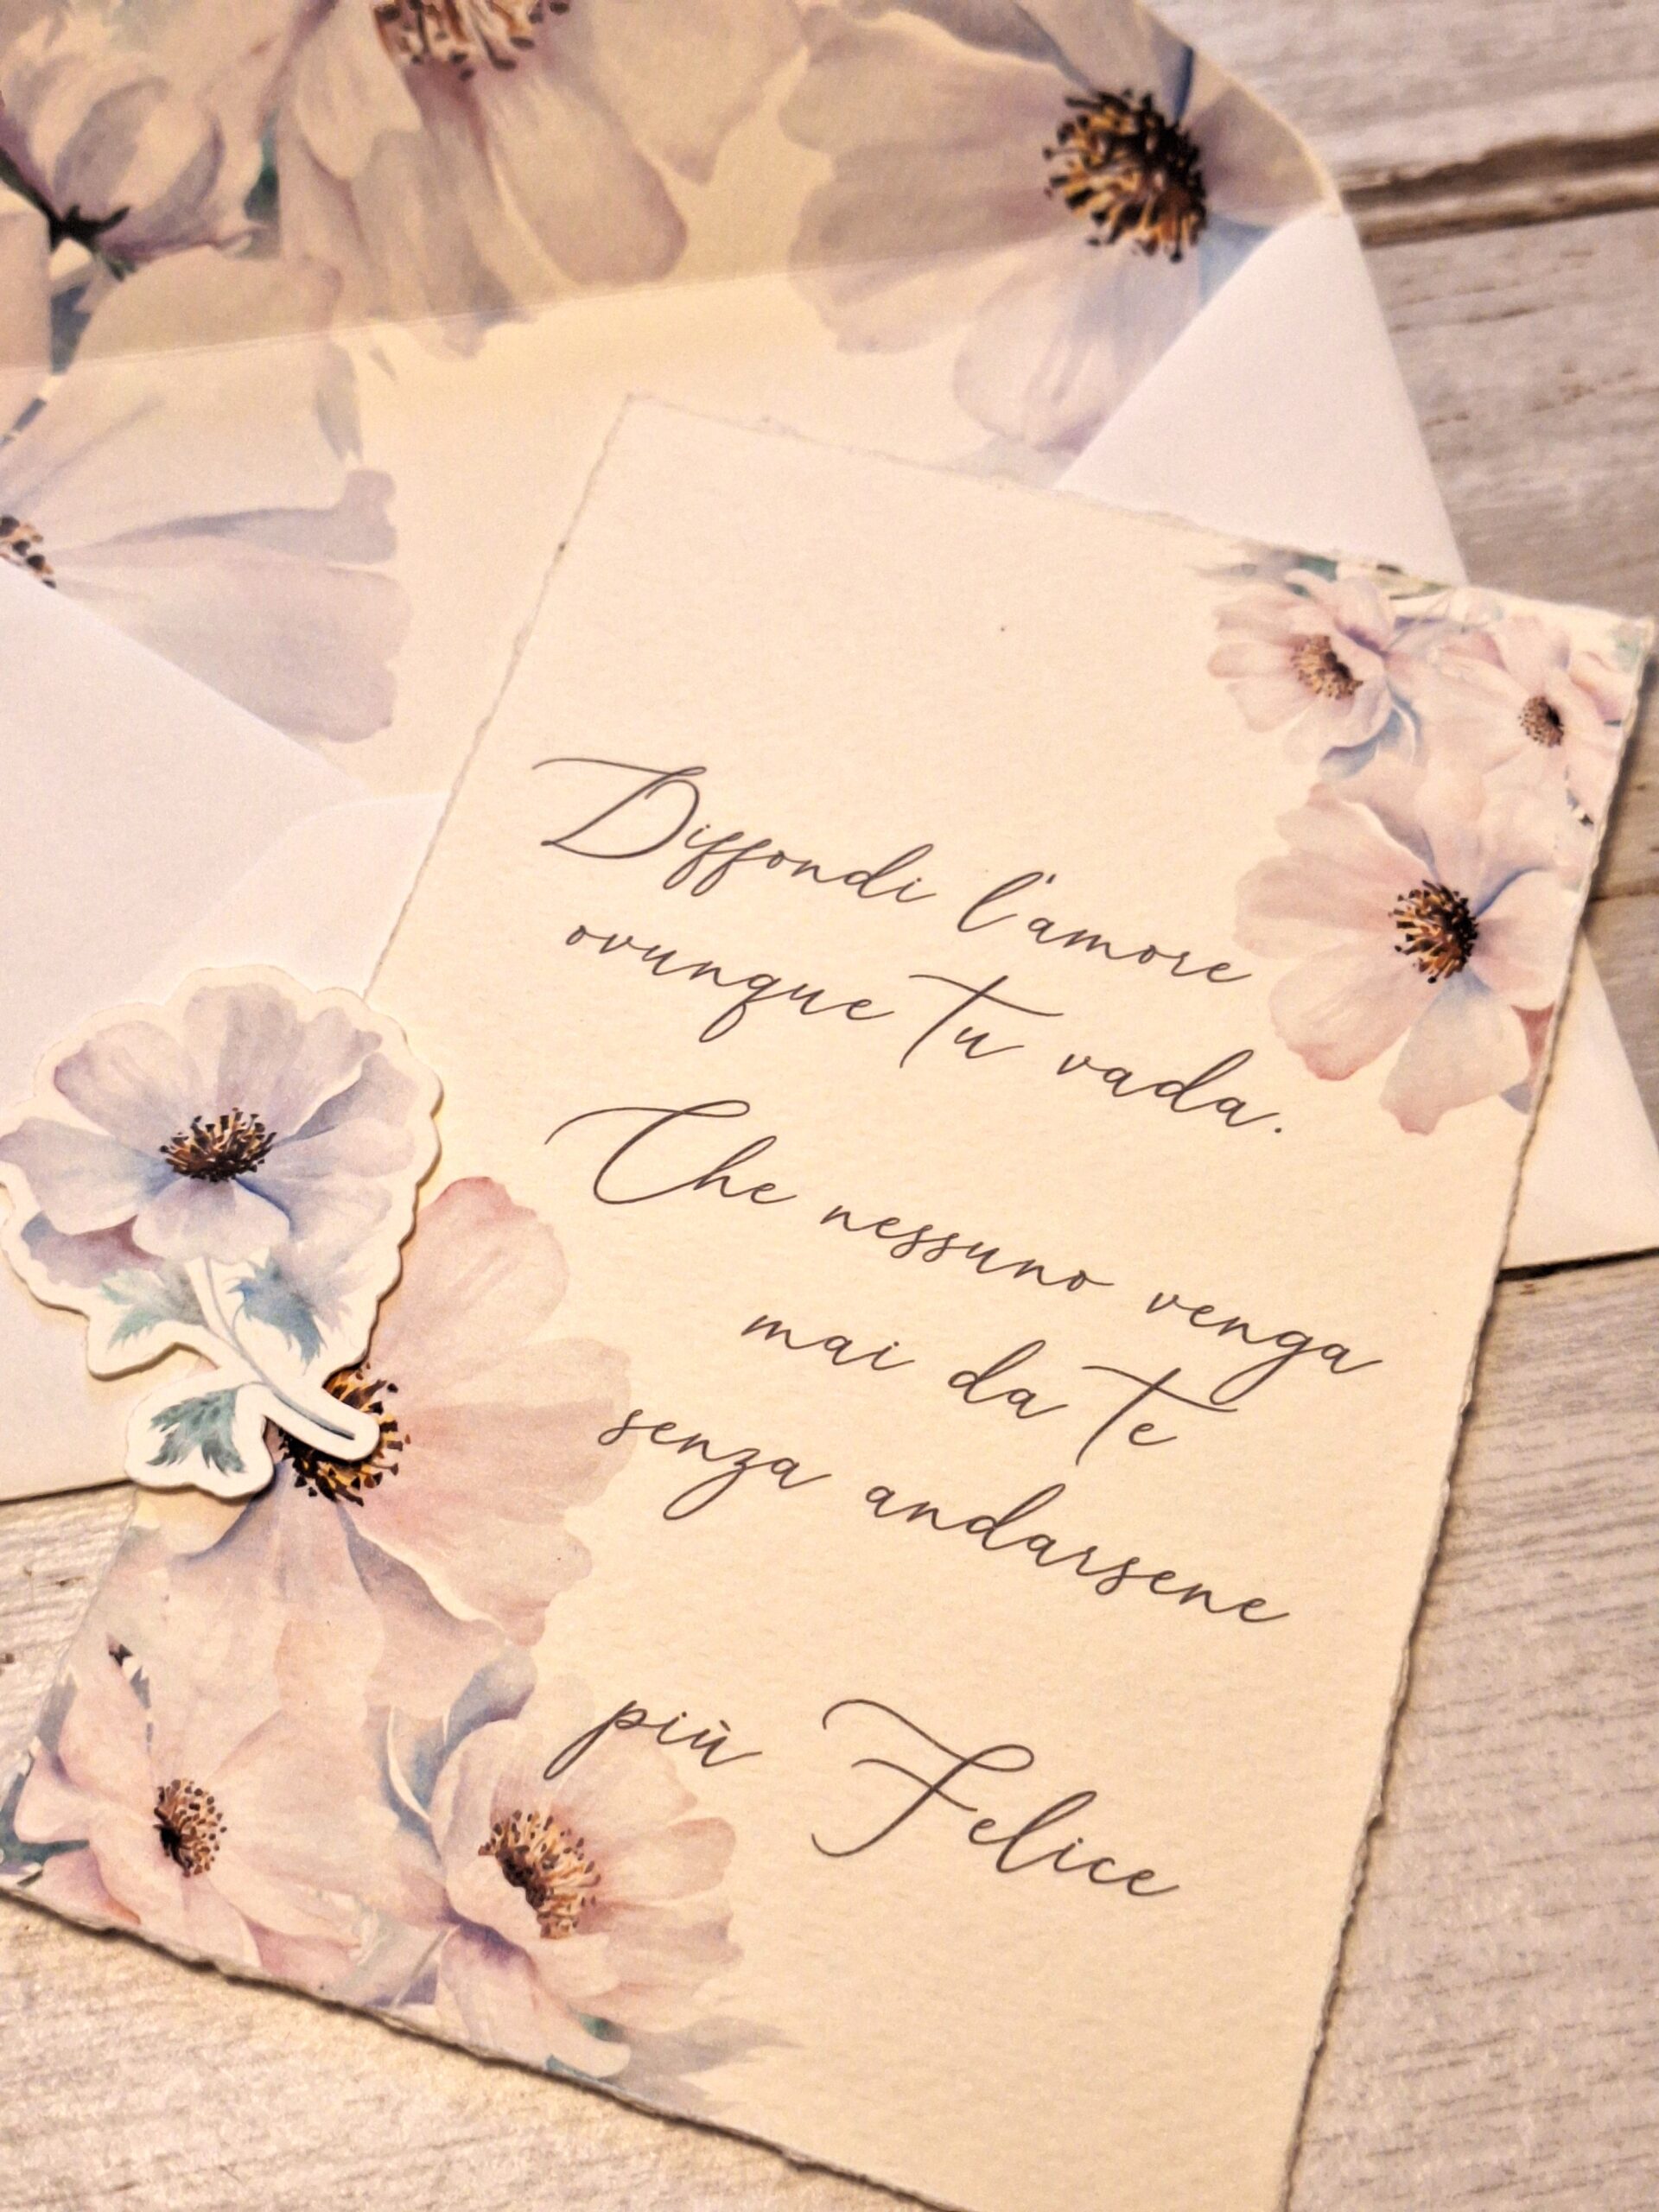 Diffondi l'amore
ovunque tu vada.
Che nessuno venga
mai da te
senza andarsene
più Felice